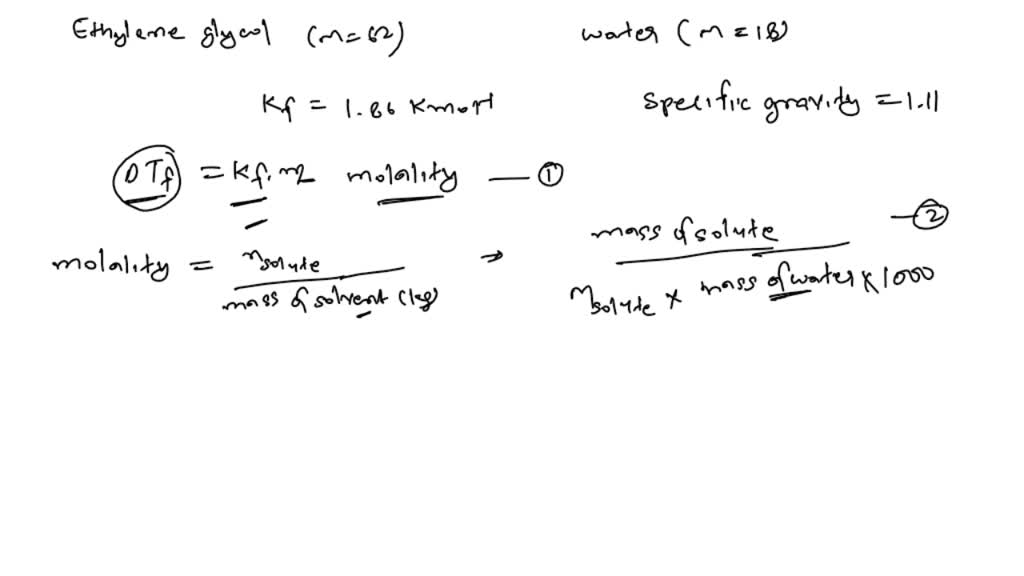 Ethylene glycol (m=62) water (m=18)
Kf = 1.86 Kmol-1 specific gravity = 1.11
ΔTf = Kf. m molality — ①
molality = nsolute / mass of solvent (kg) → mass of solute / Msolute × mass of water × 1000 — ②